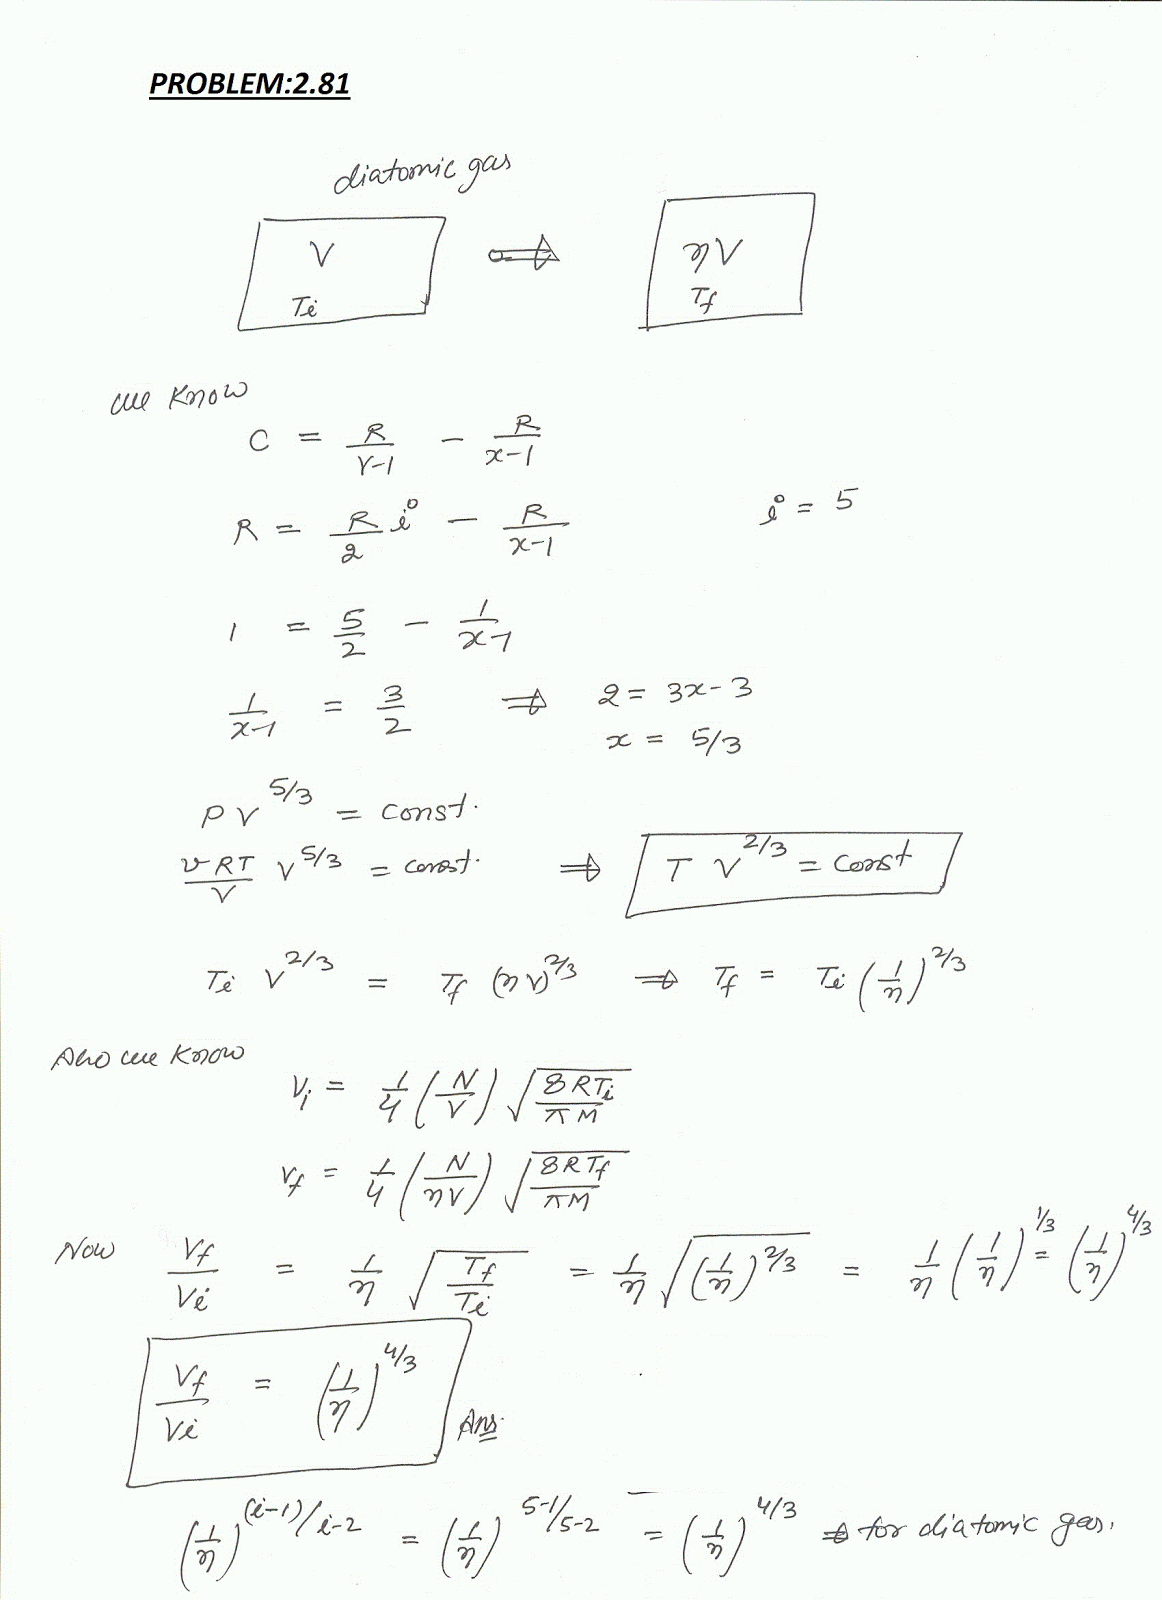 PROBLEM:2.81
diatomic gas
V ηV
Ti Tf
we know
C = R/(γ-1) - R/(x-1)
R = R/2 i - R/(x-1) i = 5
1 = 5/2 - 1/(x-1)
1/(x-1) = 3/2 ⇒ 2 = 3x-3
x = 5/3
PV^5/3 = const.
νRT/V V^5/3 = const. ⇒ T V^2/3 = const
Ti V^2/3 = Tf (ηV)^2/3 ⇒ Tf = Ti (1/η)^2/3
Also we know
Vi = 1/4 (N/V) √(8RTi/πM)
Vf = 1/4 (N/ηV) √(8RTf/πM)
Now Vf/Vi = 1/η √(Tf/Ti) = 1/η √((1/η)^2/3) = 1/η (1/η)^1/3 = (1/η)^4/3
Vf/Vi = (1/η)^4/3 Ans.
(1/η)^(i-1)/i-2 = (1/η)^5-1/5-2 = (1/η)^4/3 ⇒ for diatomic gas.